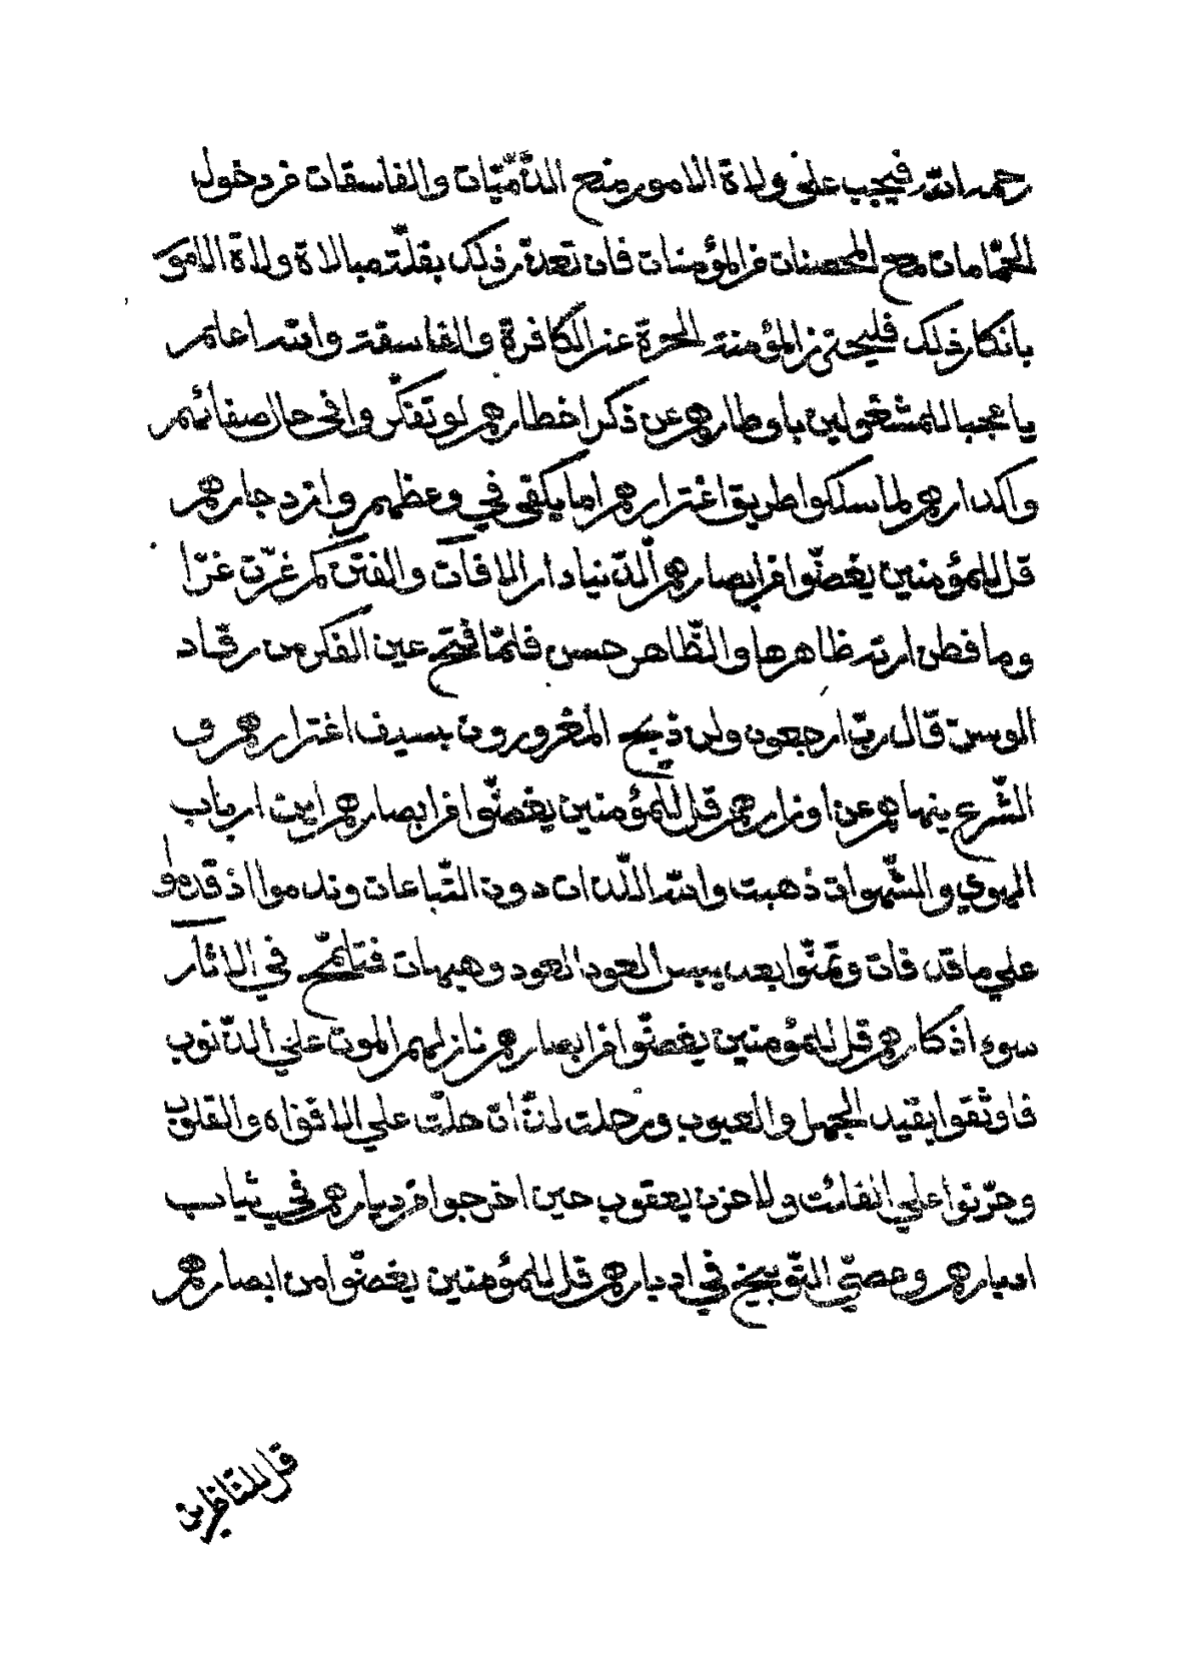 رحمه الله فيجب على ولاة الامور منع الذّمّيّات والفاسقات من دخول
الحمّامات مع المحصنات من المؤمنات فان تعذّر ذلك بقلّة مبالاة ولاة الامور
بانكار ذلك فليحترز المؤمنة الحرّة عن الكافرة والفاسقة والله اعلم
يا عجبا للمشغولين باوطارهم عن ذكر اخطارهم لو تفكّروا في حال صفائهم
واكدارهم لما سلكوا طريق اغترارهم اما يكفي في وعظهم وازدجارهم
قل للمؤمنين يغضّوا من ابصارهم الدّنيا دار الآفات والفتن كم غرّت غرّا
وما فطن ارته ظاهرها والظّاهر حسن فلمّا فتح عين الفكر من رقاد
الوسن قال ربّ ارجعون ولن ذبح المغرورون بسيف اغترارهم و
الشّرع ينهاهم عن اوزارهم قل للمؤمنين يغضّوا من ابصارهم اين ارباب
الهوي والشّهوات ذهبت والله اللّذات دون التّباعات وندموا اذ قدموا
علي ما قد فات وتمنّوا بعد يبس العود العود وهيهات فتلمّح في الآثار
سوء اذكارهم قل للمؤمنين يغضّوا من ابصارهم نازلهم الموت علي الذّنوب
فاوثقوا بقيد الجهل والعيوب ورحلت لذّات حلّت علي الافواه والقلوب
وحزنوا علي الفائت ولا حزن يعقوب حين اخرجوا من ديارهم في ثياب
ادبارهم وعصيّ التّوبيخ في ادبارهم قل للمؤمنين يغضّوا من ابصارهم